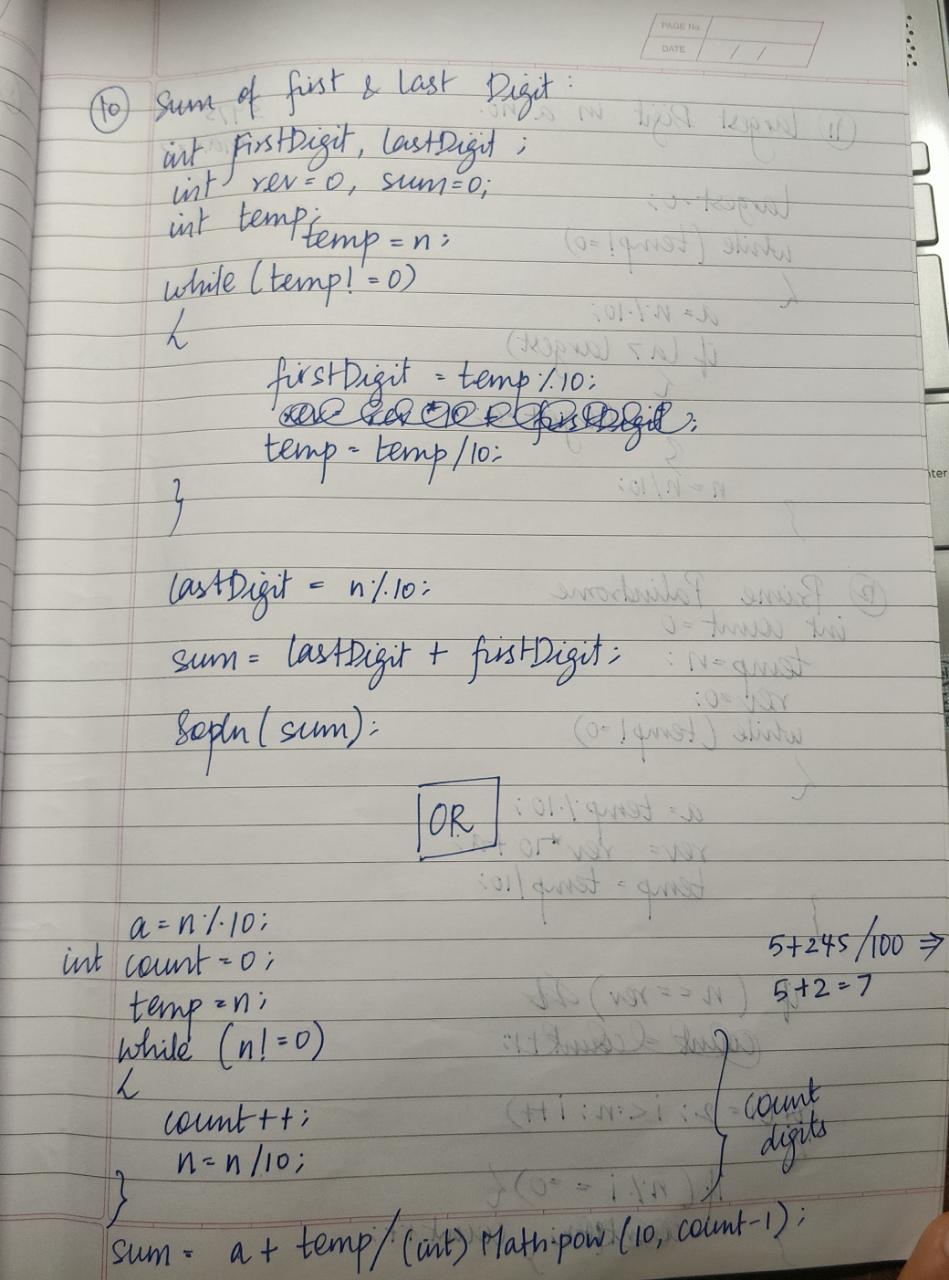 PAGE No.
DATE / /
10 Sum of first & Last Digit:
int FirstDigit, LastDigit ;
int rev=0, sum=0;
int temp;
temp = n;
while (temp! = 0)
{
firstDigit = temp%10;
temp = temp/10;
}
LastDigit = n%10;
sum = LastDigit + firstDigit;
Sopln(sum);
OR
a = n%10;
int count = 0;
temp = n;
while (n! = 0)
{
count++;
n = n/10;
}
sum = a + temp/(int) Math.pow(10, count-1);
5+245/100 ⇒
5+2=7
} count
digits